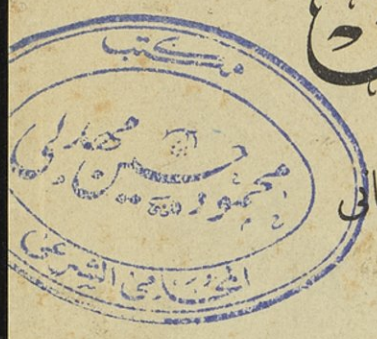 مكتب
محمود حسين مهدلي
المحامي الشرعي